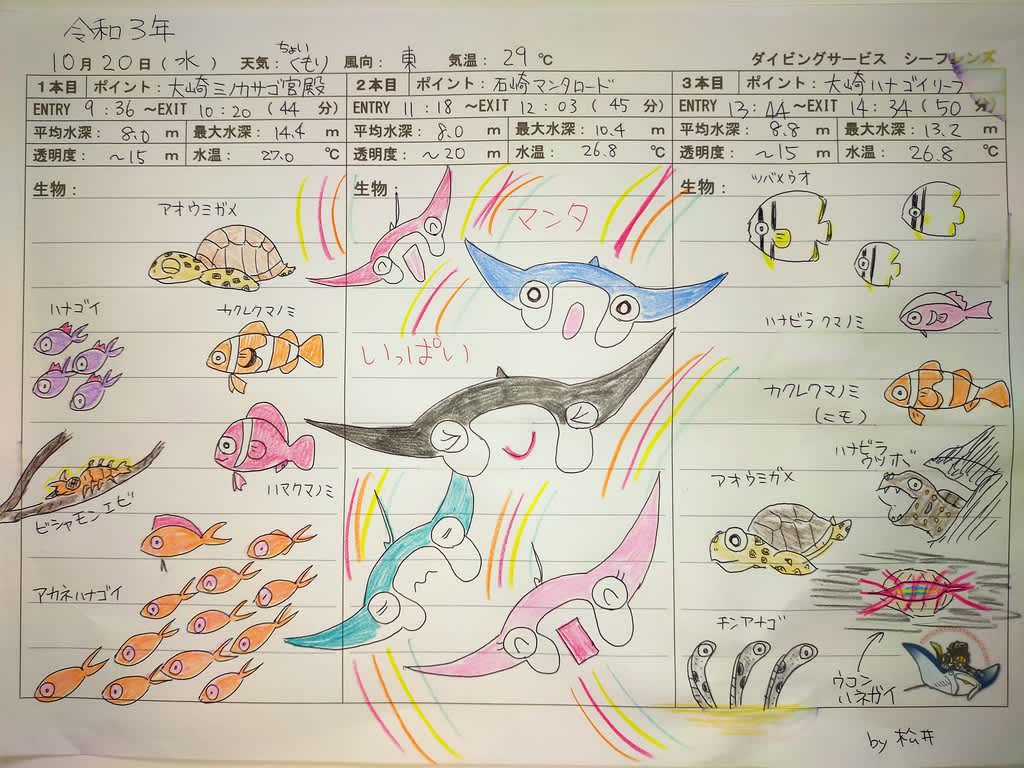 令和3年
10月20日(水) 天気:ちょいくもり 風向:東 気温:29℃
ダイビングサービス シーフレンズ
1本目 ポイント:大崎ミノカサゴ宮殿
ENTRY 9:36 ~EXIT 10:20 (44 分)
平均水深: 8.0 m 最大水深: 14.4 m
透明度: ~15 m 水温: 27.0 ℃
生物:
アオウミガメ
ハナゴイ
カクレクマノミ
ハマクマノミ
ビシャモンエビ
アカネハナゴイ
2本目 ポイント:石崎マンタロード
ENTRY 11:18 ~EXIT 12:03 (45 分)
平均水深: 8.0 m 最大水深: 10.4 m
透明度: ~20 m 水温: 26.8 ℃
生物:
マンタ
いっぱい
3本目 ポイント:大崎ハナゴイリーフ
ENTRY 13:44 ~EXIT 14:34 (50 分)
平均水深: 8.8 m 最大水深: 13.2 m
透明度: ~15 m 水温: 26.8 ℃
生物:
ツバメウオ
ハナビラクマノミ
カクレクマノミ
(ニモ)
ハナビラ
ウツボ
アオウミガメ
チンアナゴ
ウコン
ハネガイ
by 松井